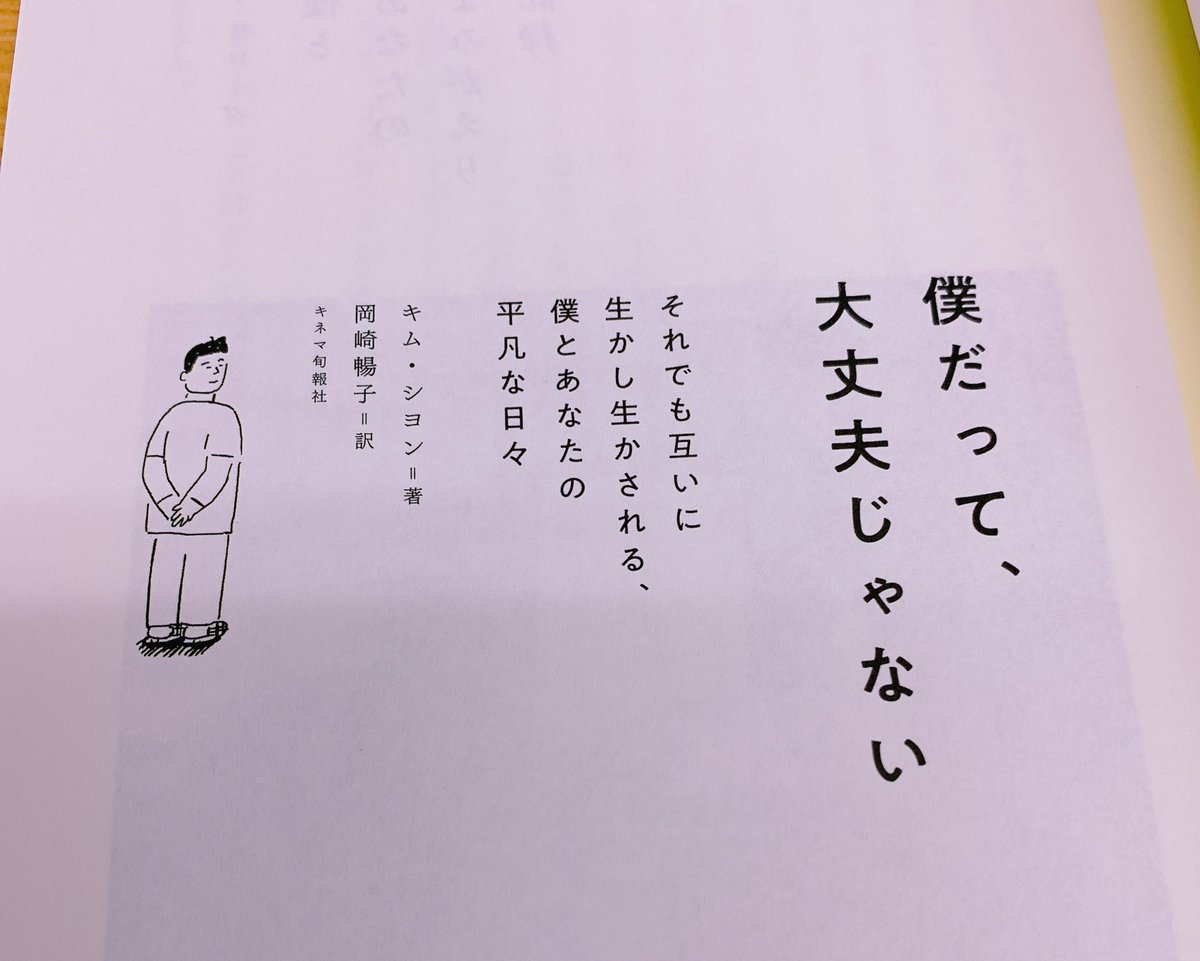 僕だって、
大丈夫じゃない
それでも互いに
生かし生かされる、
僕とあなたの
平凡な日々
キム・シヨン=著
岡崎暢子=訳
キネマ旬報社